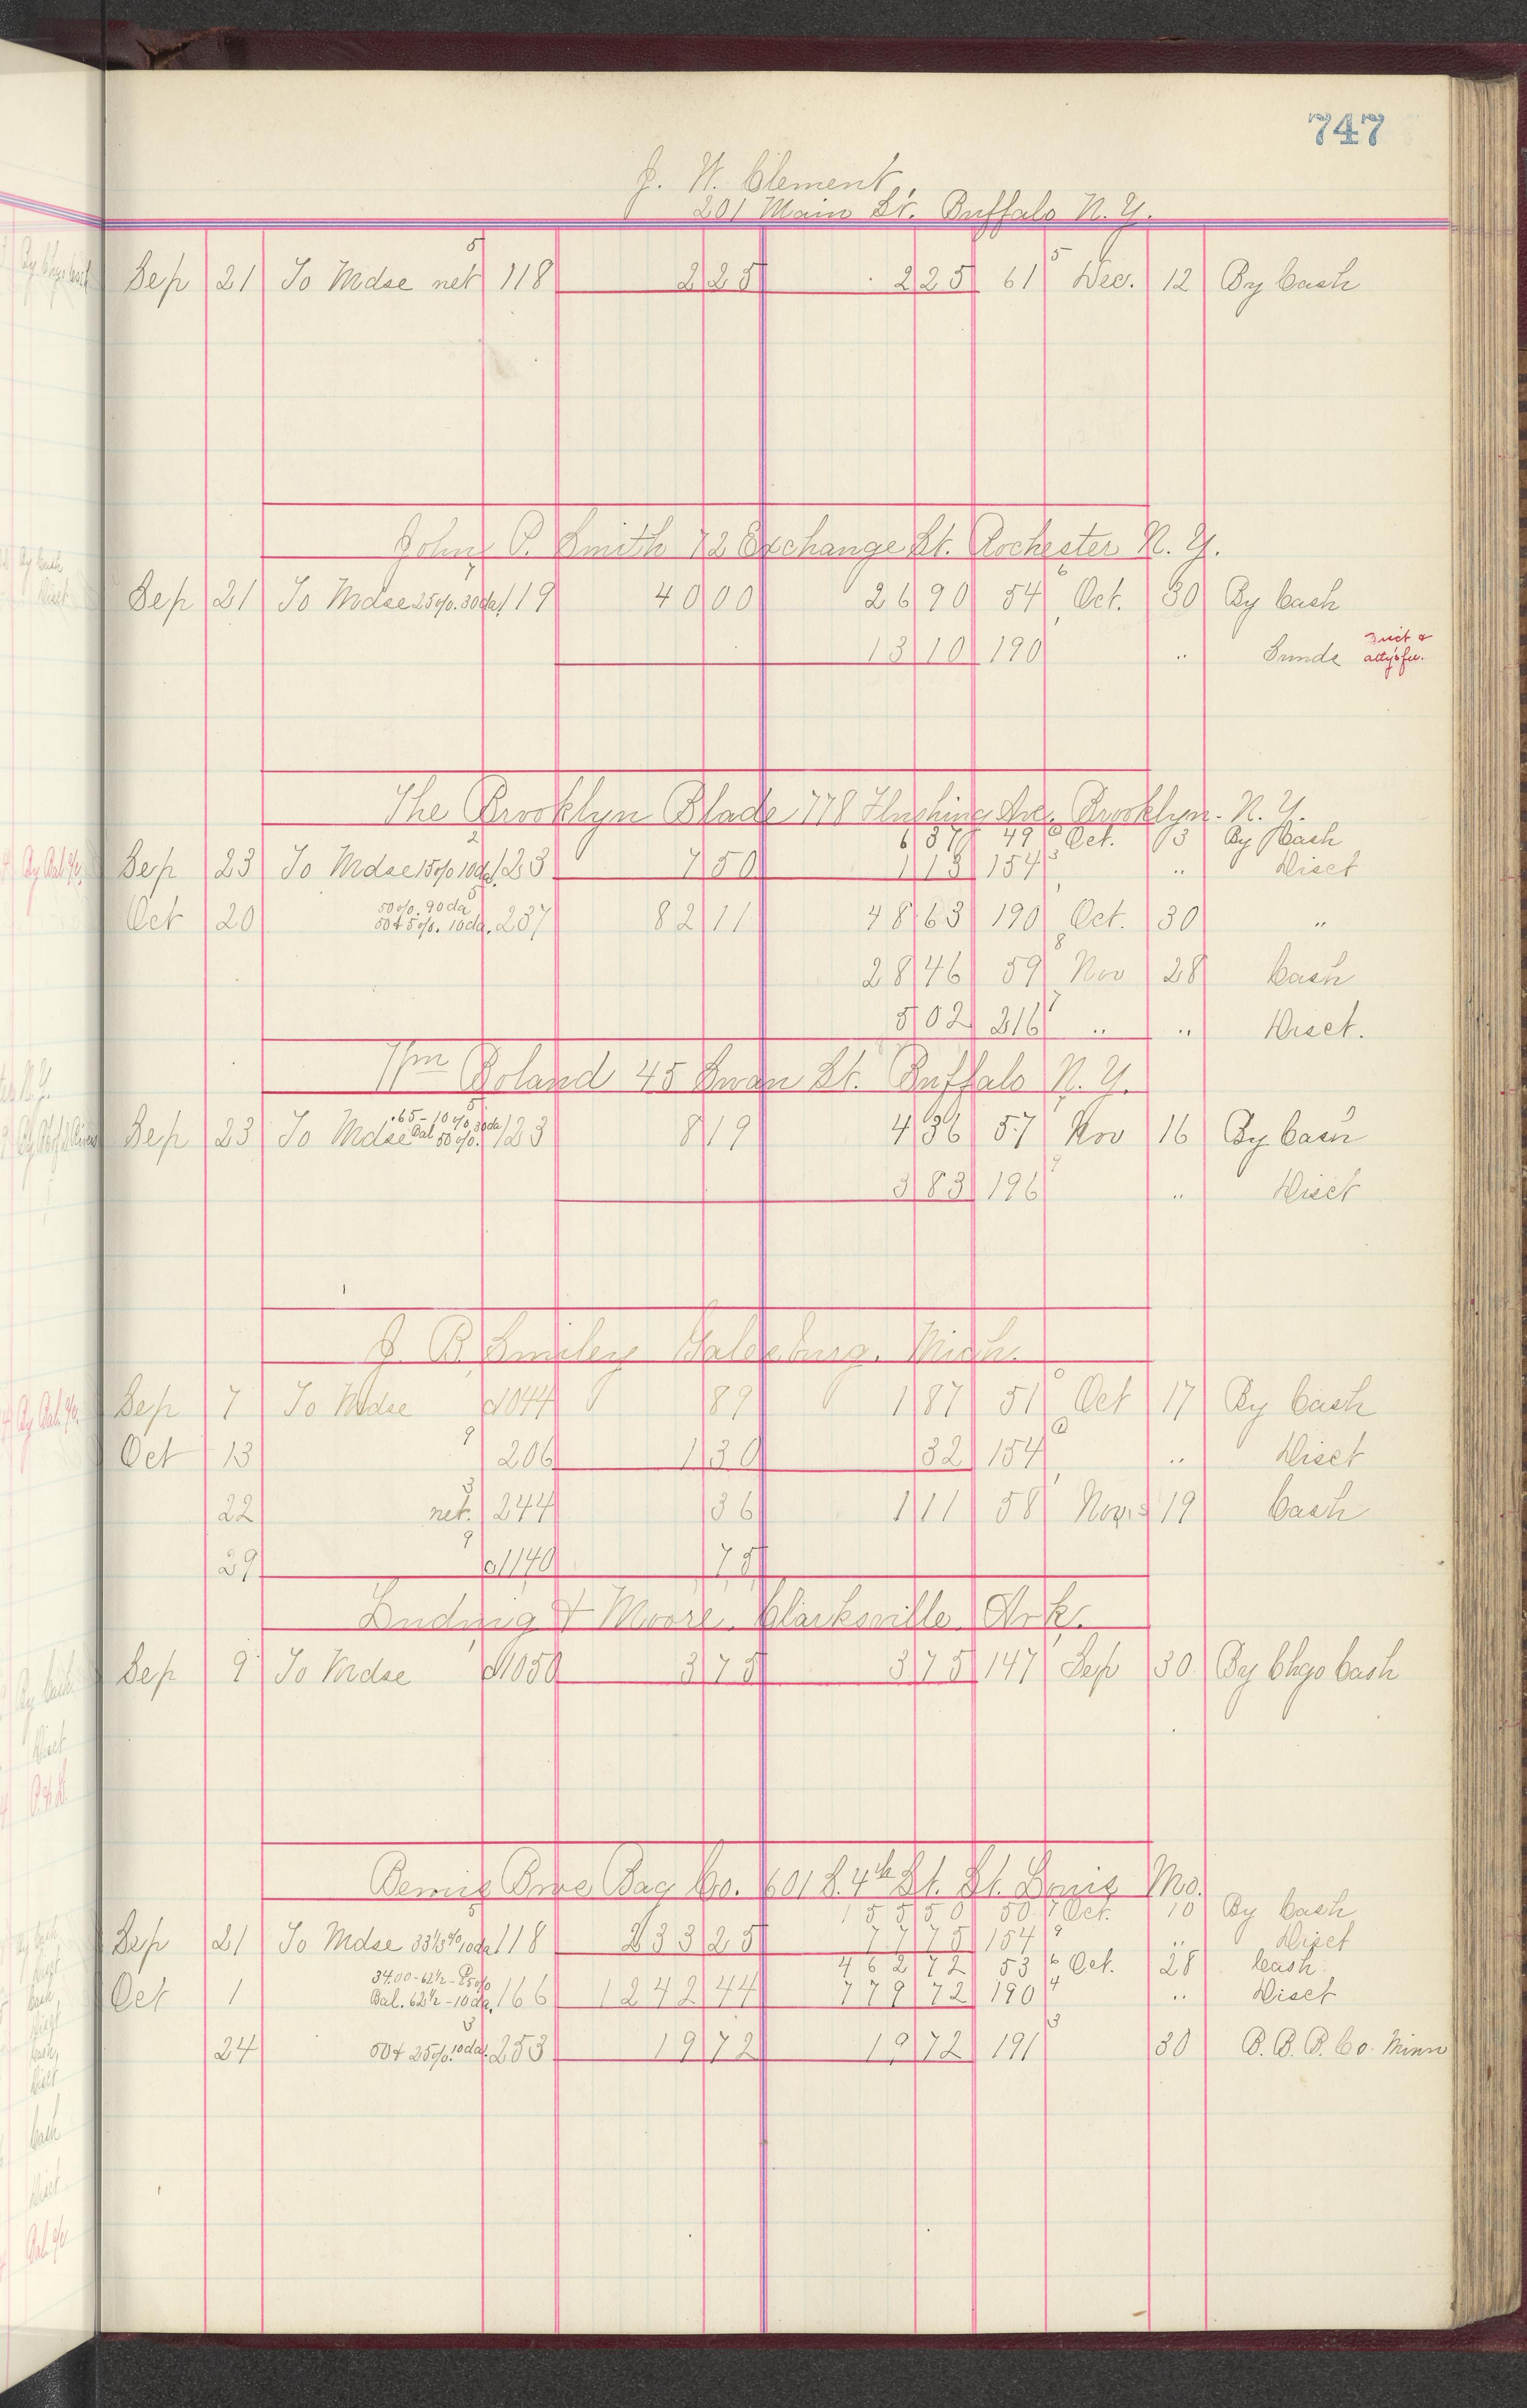 747
J. W. Clement,
201 Main St. Buffalo N. Y.
Sep 21 To Mdse net 5 118 2 25 2 25 61 5 Dec. 12 By Cash
John P. Smith 72 Exchange St. Rochester N. Y.
Sep 21 To Mdse 25%. 30da 7 119 40 00 26 90 54 6 Oct. 30 By Cash
13 10 190 " Sunds Disct & atty's fee.
The Brooklyn Blade 778 Flushing Ave. Brooklyn. N. Y.
6 37 49 Oct. 13 By Cash
Sep 23 To Mdse 15% 10da. 2 123 7 50 1 13 154 3 " Disct
Oct 20 50%. 90da 50 & 5%. 10da. 237 82 11 48 63 190 Oct. 30 "
28 46 59 8 Nov 28 Cash
5 02 216 7 " " Disct.
Wm Boland 45 Swan St. Buffalo N. Y.
Sep 23 To Mdse .65-10% 30da Bal 50%. 123 8 19 4 36 57 Nov 16 By Cash
3 83 196 9 " Disct
J. B. Smiley Galesburg. Mich.
Sep 7 To Mdse c/1044 89 1 87 51 Oct 17 By Cash
Oct 13 9 206 1 30 32 154 " Disct
22 net. 3 244 36 1 11 58 Nov. 19 Cash
29 9 c/1140 75
Luding & Moore. Clarksville Ark.
Sep 9 To Mdse c/1050 3 75 3 75 147 Sep 30 By Chgo Cash
Bemis Bros Bag Co. 601 S. 4th St. St. Louis Mo.
155 50 50 7 Oct. 10 By Cash
Sep 21 To Mdse 33⅓% 10da 118 233 25 77 75 154 9 " Disct
462 72 53 6 Oct. 28 Cash
Oct 1 34.00-62½- 25% Bal. 62½-10da. 166 1242 44 779 72 190 4 " Disct
24 50 & 25%. 10da. 3 253 19 72 19 72 191 3 30 B. B. B. Co. Minn